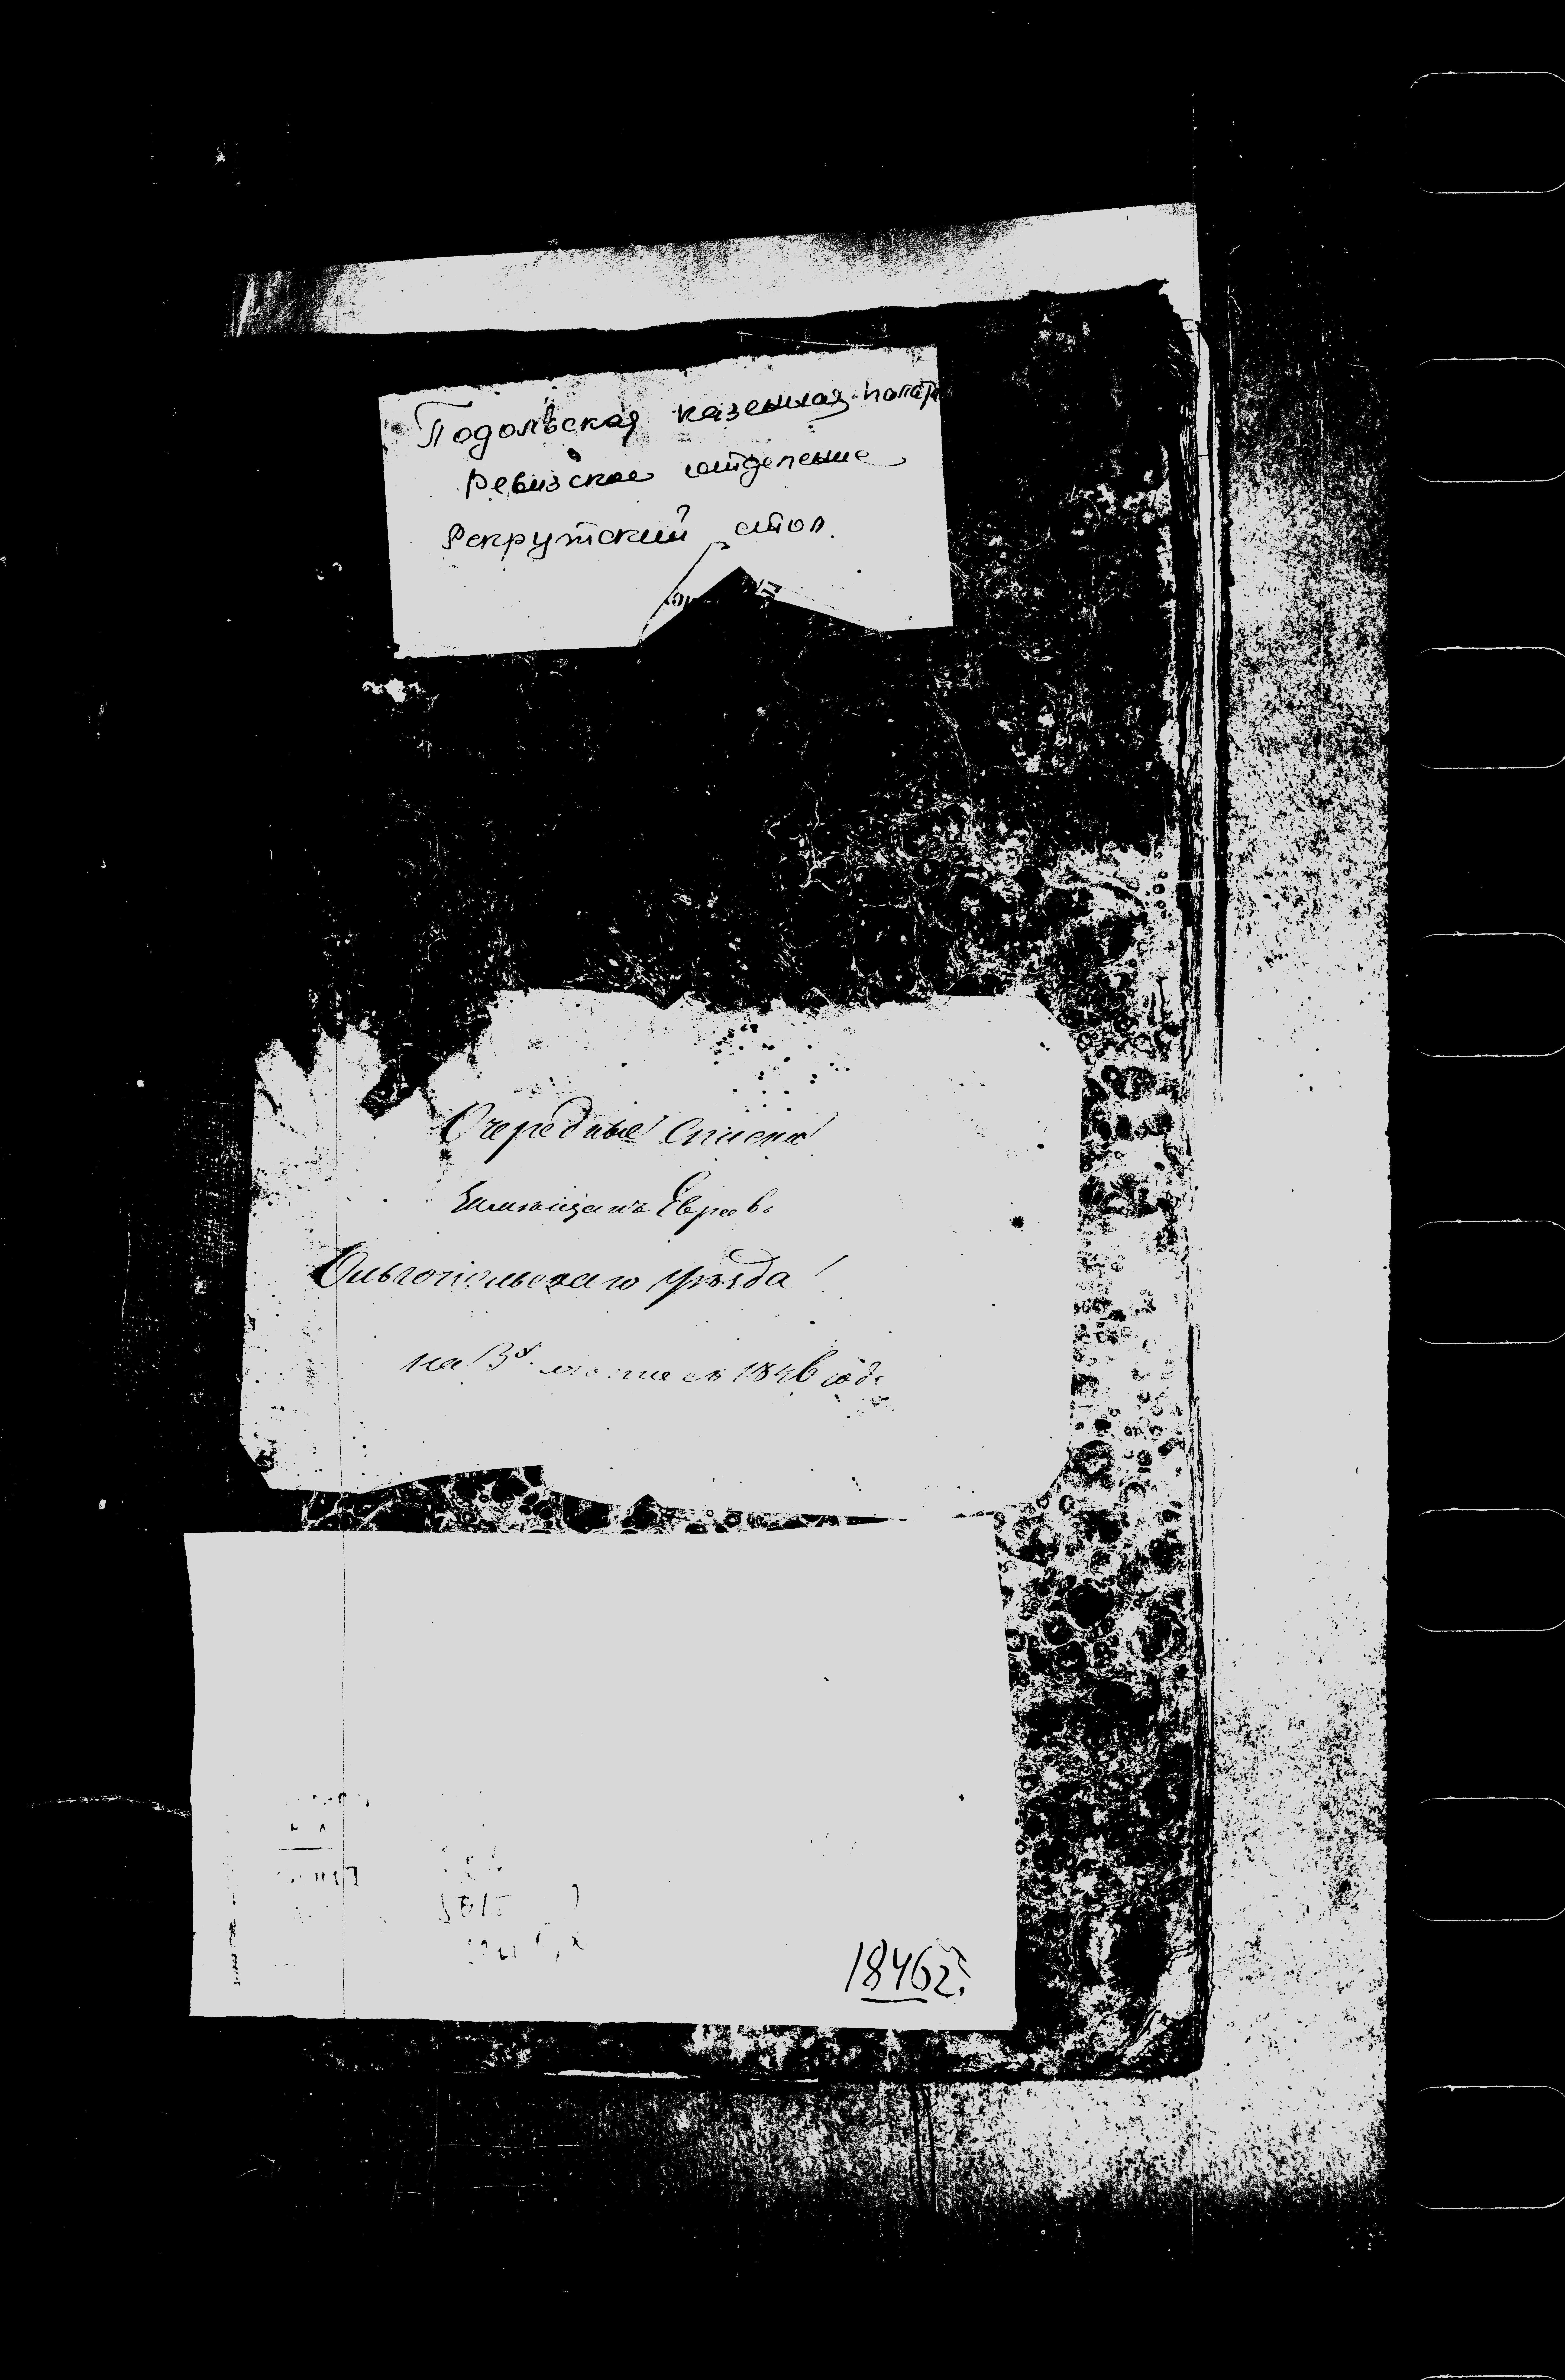 Подольская казенная палата
Ревизское отделение
Рекрутский стол
Очередные списки
мещанъ Евреевъ
Ольгопольскаго уѣзда
на 3й 1846 годъ
1846 г.